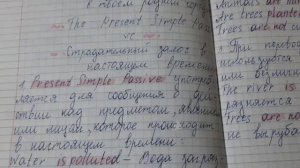 в твоём родном гор
The Present Simple Pas
ve
Страдательный залог в
настоящем времени
1 Present Simple Passive употреб
ляется для сообщения о дей
ствии над предметом, явлени
или лицом, которое происходит
в настоящем времени.
Water is polluted - Вода загряз
animals are hu
Are trees planted
Trees are not cu
При перево
используется
или безличн
The river is
грязняется
Trees are no
не выруба